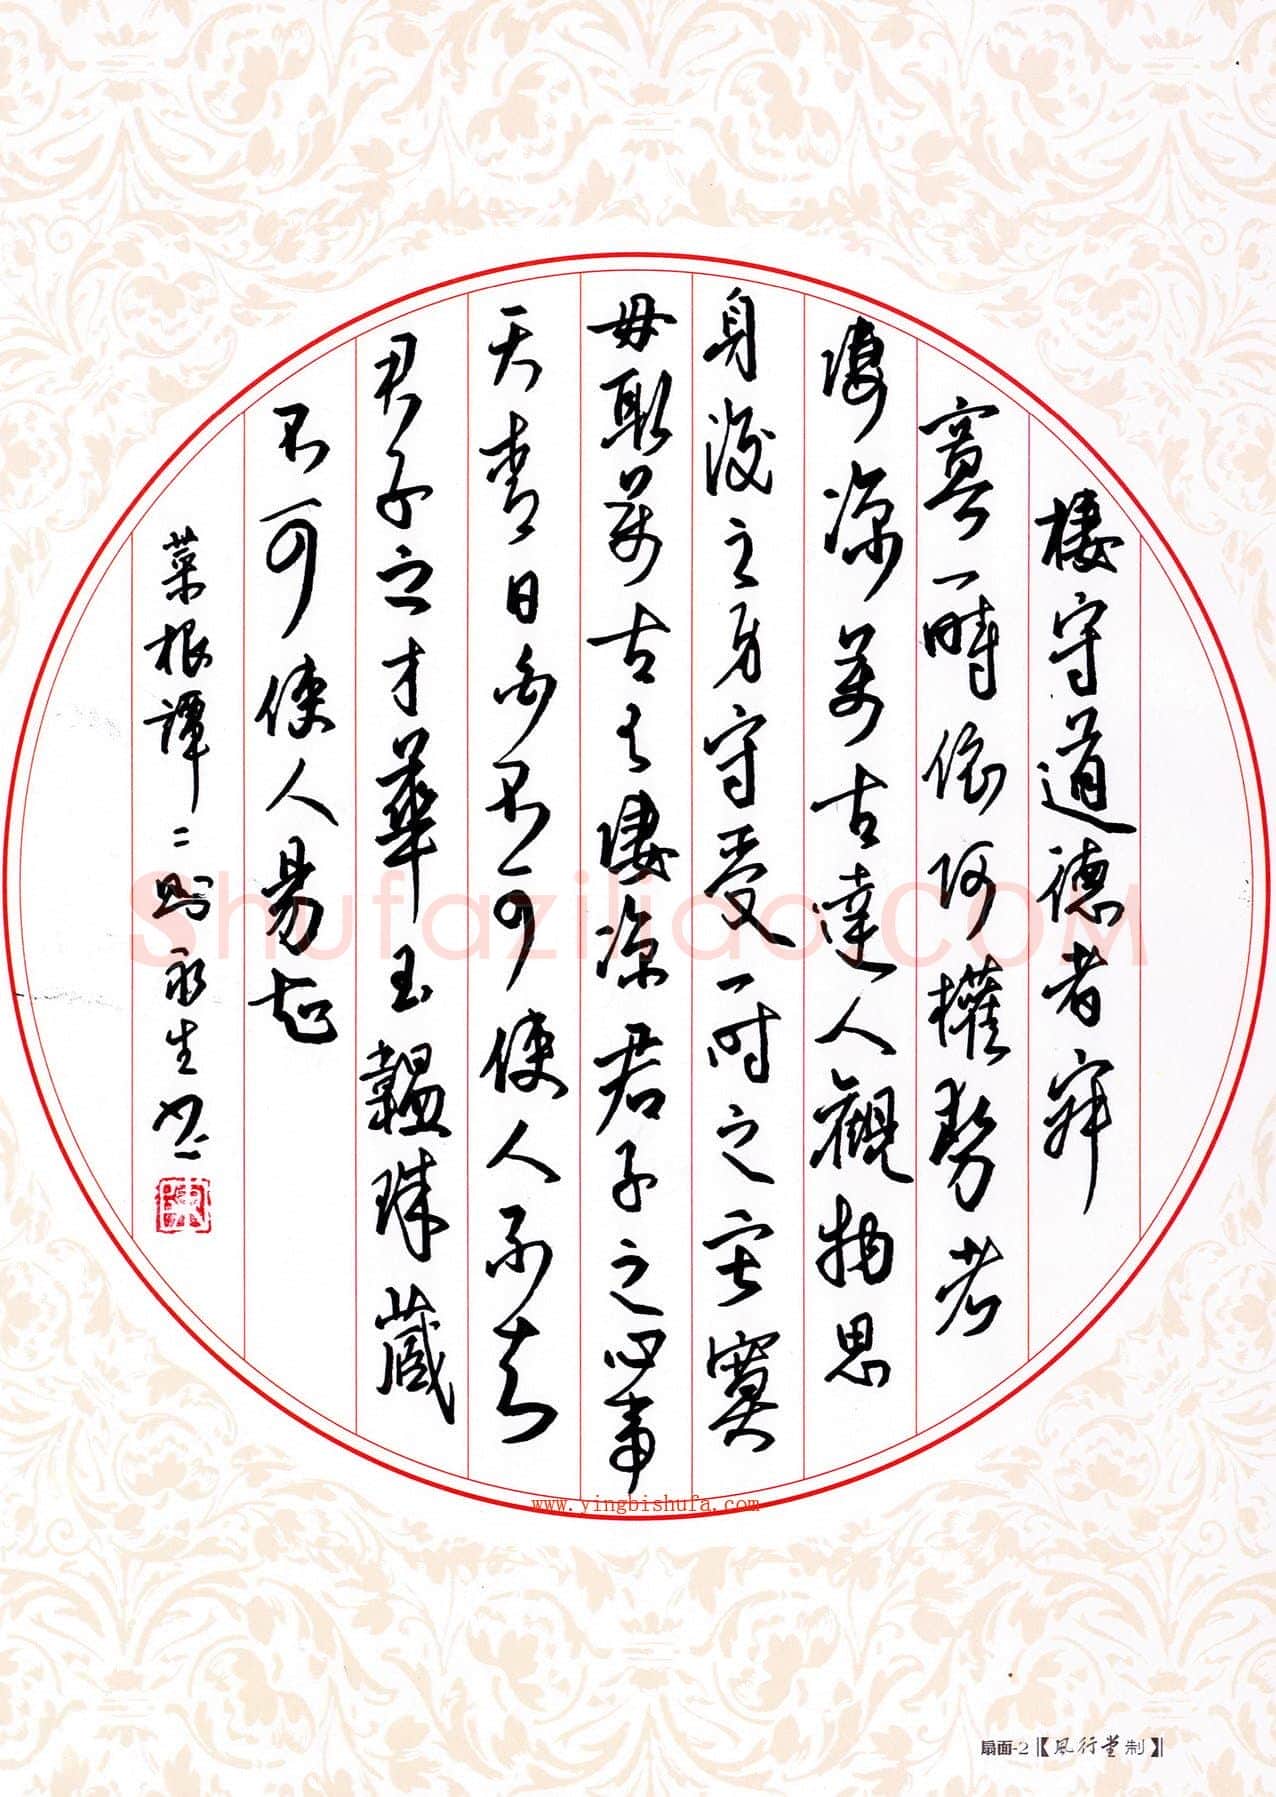 棲守道德者寂
寞一時依阿權勢者
凄涼萬古達人觀物思
身後之身寧受一時之寂寞
毋取萬古之凄涼君子之心事
天青日白不可使人不知
君子之才華玉韞珠藏
不可使人易知
菜根譚二則永生書
陳
Shufaziliao.COM
www.yingbishufa.com
扇面-2【风行堂制】